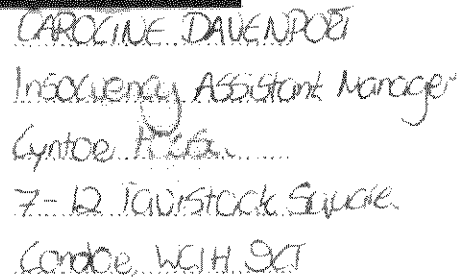 CAROLINE DAVENPORT
Insolvency Assistant Manager
Lynton House
7-12 Tavistock Square
London, WC1H 9LT